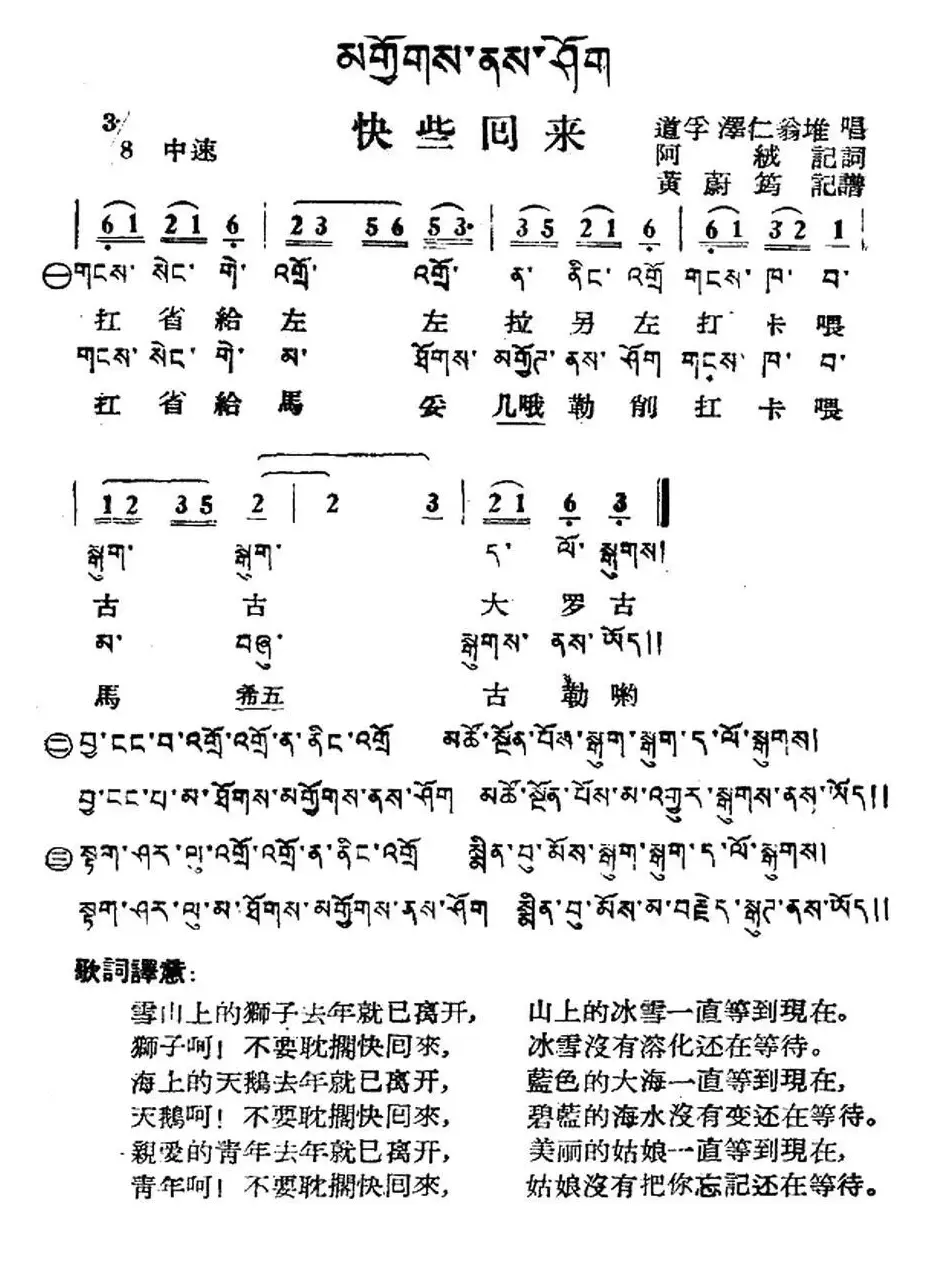 མགྱོགས་ནས་ཤོག
快些回来
3/8 中速
道孚澤仁翁堆 唱
阿絨 記詞
黃蔚筠 記譜
6 1 2 1 6 | 2 3 5 6 5 3· | 3 5 2 1 6 | 6 1 3 2 1 |
㊀ གངས་ སེང་ གེ་ འགྲོ་ འགྲོ་ ན་ ནིང་ འགྲོ གངས་ ཁ་ བ་
扛 省 給 左 左 拉 另 左 扛 卡 喂
གངས་ སེང་ གེ་ མ་ ཐོགས་ མགྱོཊ་ ནས་ ཤོག གངས་ ཁ་ བ་
扛 省 給 馬 妥 几哦 勒 削 扛 卡 喂
1 2 3 5 2 | 2 3 | 2 1 6 3
སྒུག་ སྒུག་ ད་ ལོ་ སྒུགས།
古 古 大 罗 古
མ་ བཞུ་ སྒུགས་ ནས་ ཡོད།།
馬 希五 古 勒 喲
㊁ བྱ་ངང་བ་འགྲོ་འགྲོ་ན་ནིང་འགྲོ མཚོ་སྔོན་པོས་སྒུག་སྒུག་ད་ལོ་སྒུགས།
བྱ་ངང་པ་མ་ཐོགས་མགྱོགས་ནས་ཤོག མཚོ་སྔོན་པོས་མ་འགྱུར་སྒུགས་ནས་ཡོད།།
㊂ སྟག་ཤར་ལུ་འགྲོ་འགྲོ་ན་ནིང་འགྲོ སྨིན་བུ་མོས་སྒུག་སྒུག་ད་ལོ་སྒུགས།
སྟག་ཤར་ལུ་མ་ཐོགས་མགྱོགས་ནས་ཤོག སྨིན་བུ་མོས་མ་བརྗེད་སྒུཊ་ནས་ཡོད།།
歌詞譯意:
雪山上的獅子去年就已离开, 山上的冰雪一直等到現在。
獅子呵! 不要耽擱快回來, 冰雪沒有溶化还在等待。
海上的天鵝去年就已离开, 藍色的大海一直等到現在,
天鵝呵! 不要耽擱快回來, 碧藍的海水沒有变还在等待。
親愛的青年去年就已离开, 美丽的姑娘一直等到現在,
青年呵! 不要耽擱快回來, 姑娘沒有把你忘記还在等待。